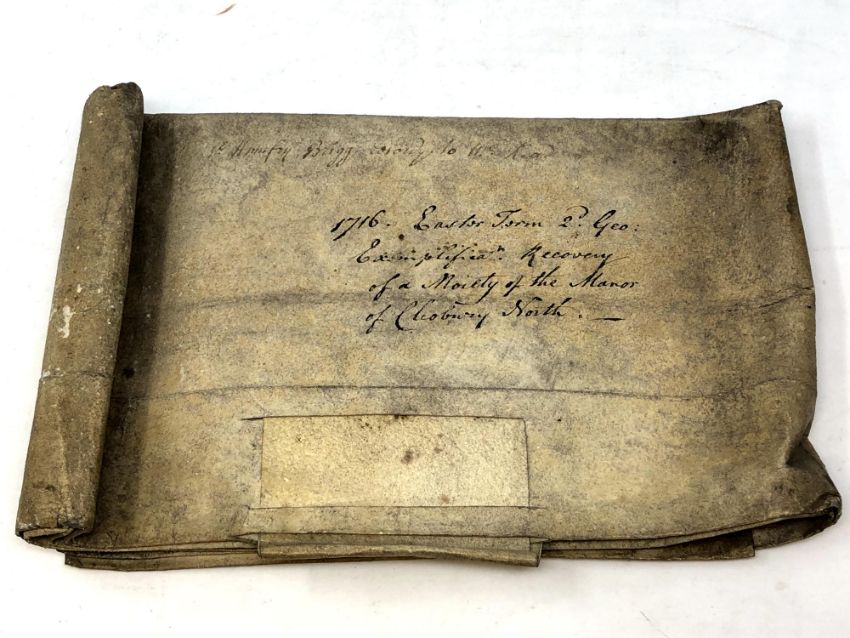 Humfry Brigg recovy to
1716. Easter Term 2d. Geo:
Exemplifican. Recovery
of a Moiety of the Manor
of Cleobury North. —